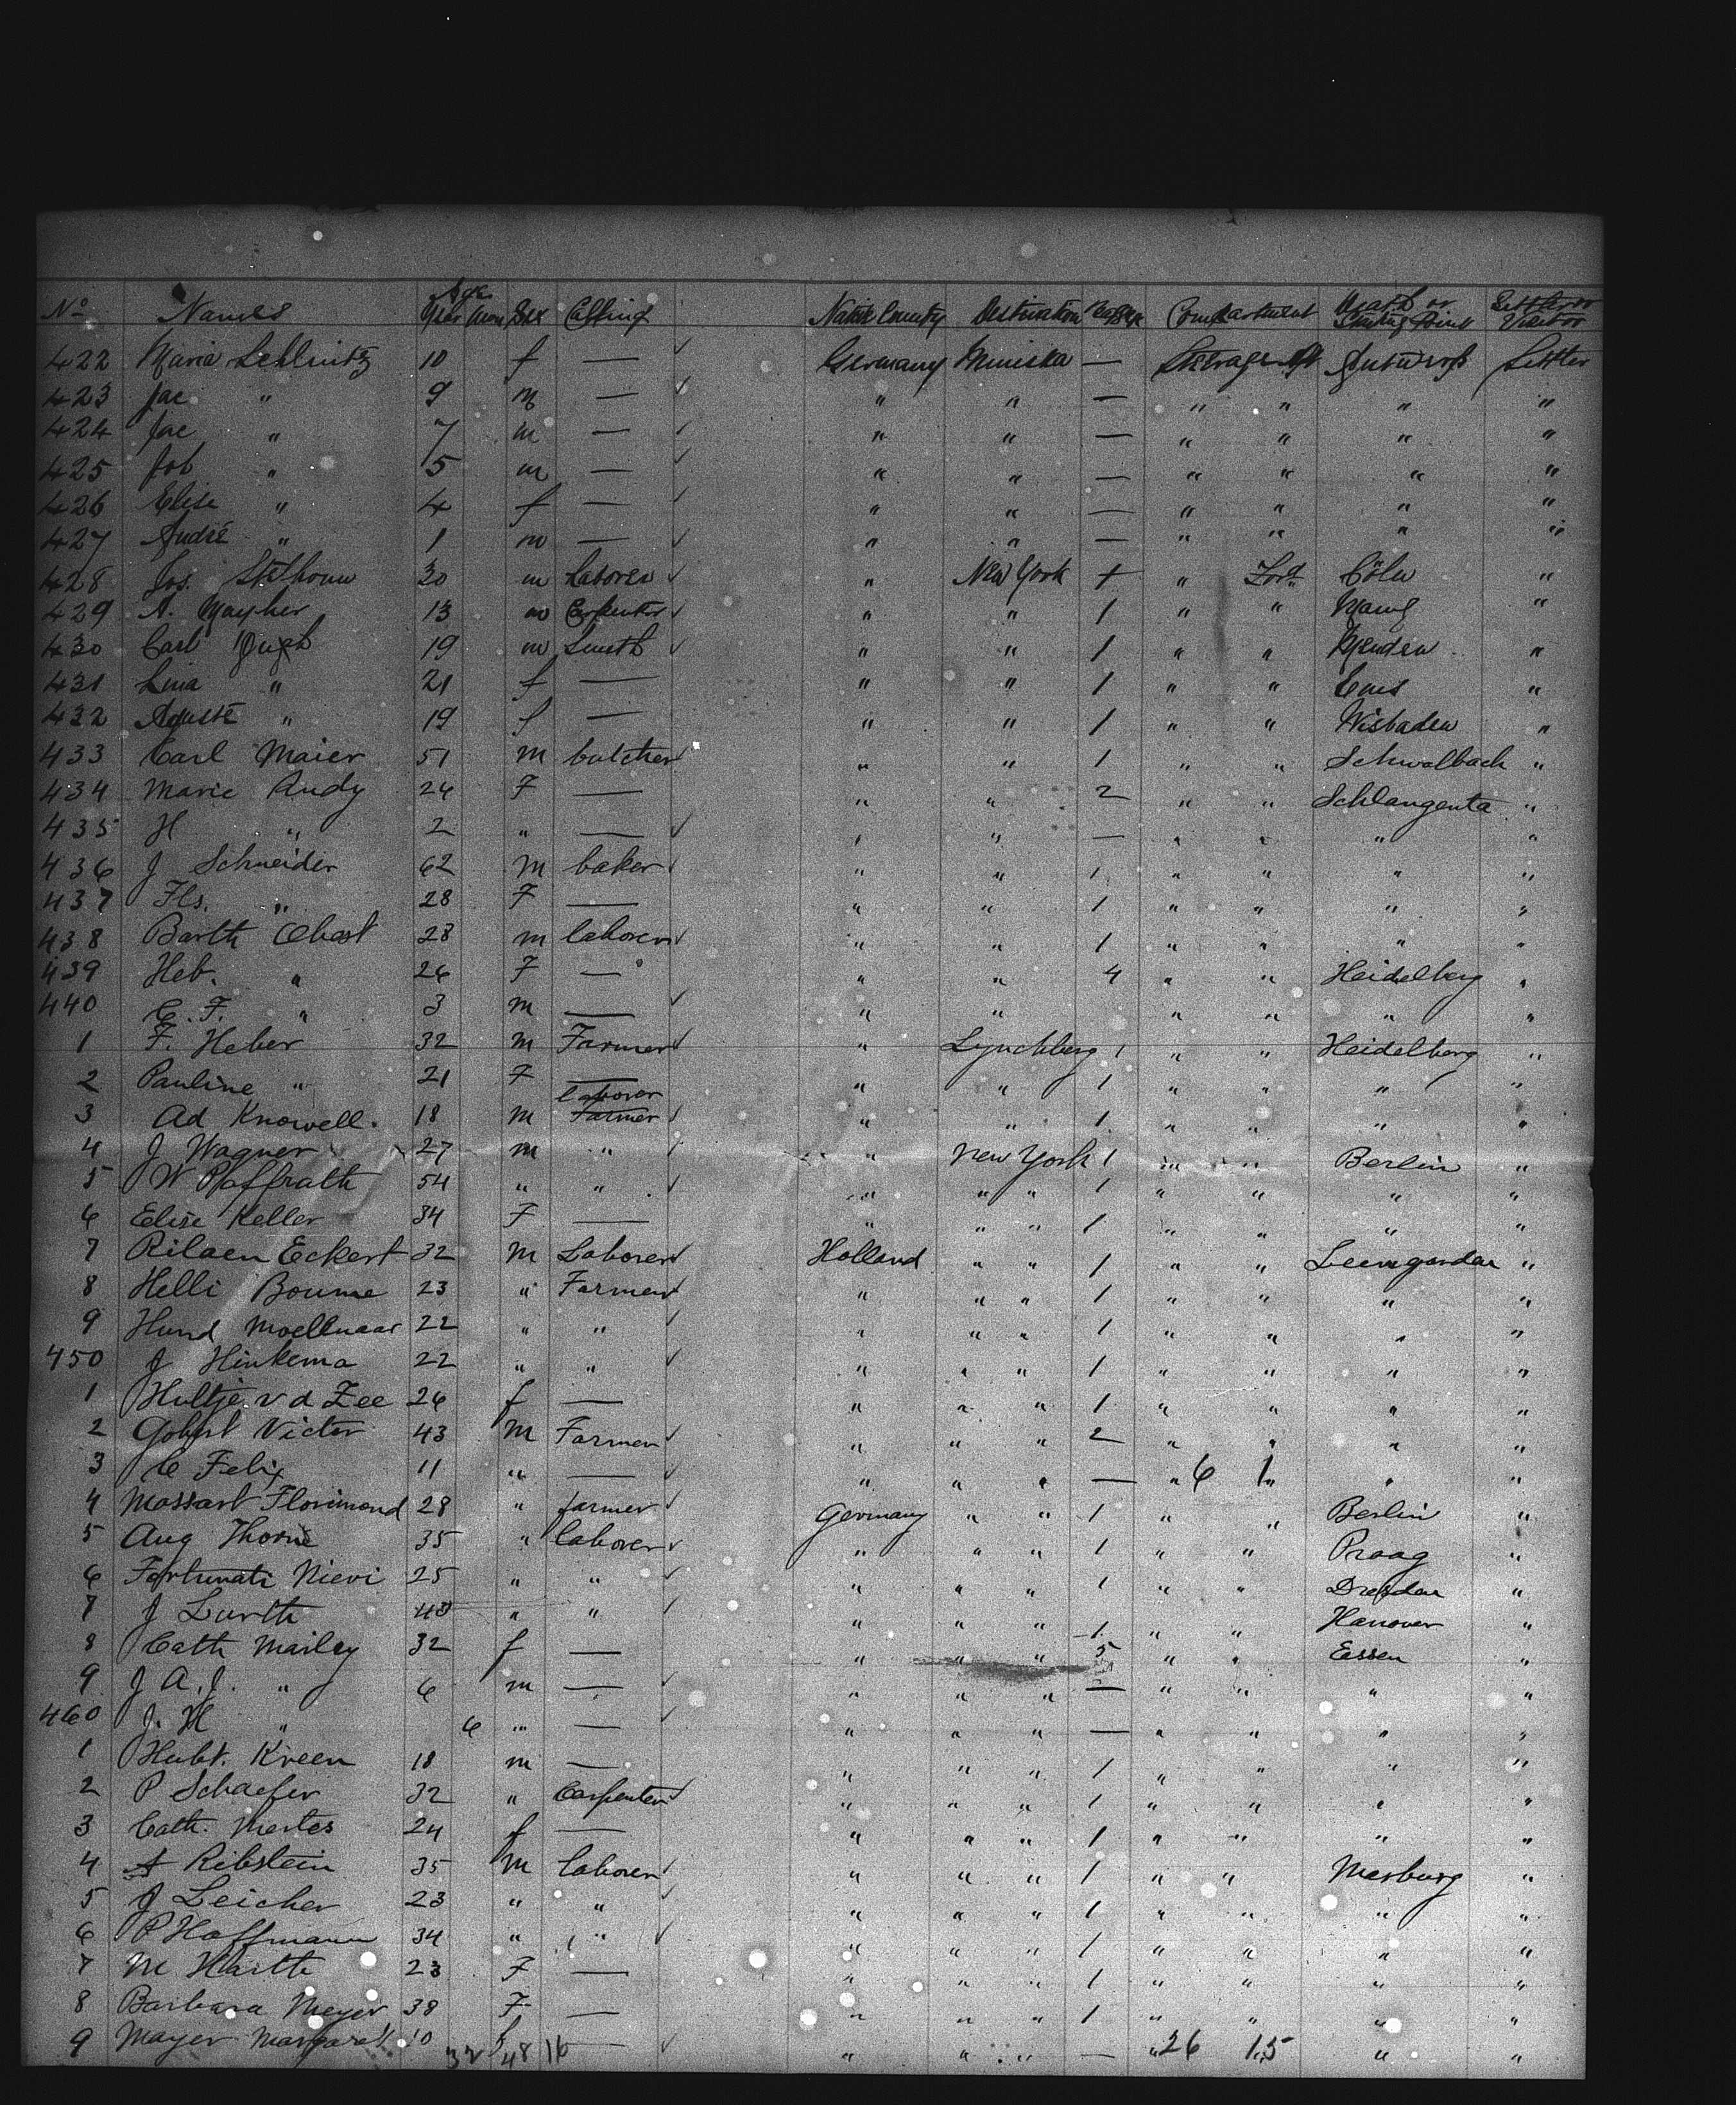 No Names Age Year Mon Sex Calling Native County Destination Compartment or Starting Point Settler or Visitor
422 Maria Sehlnitz 10 f — Germany — Steerage Aft Antwerp Settler
423 Jac " 9 m — " " — " " " "
424 Jac " 7 m — " " — " " " "
425 Job " 5 m — " " — " " " "
426 Elise " 4 f — " " — " " " "
427 André " 1 m — " " — " " " "
428 Jos. 30 m Laborer " New York " Cöln "
429 A. 13 m Carpenter " " 1 " " "
430 Carl 19 m Smith " " 1 " " "
431 Lina " 21 f — " " 1 " " Ems "
432 Aguste " 19 f — " " 1 " " Wisbaden "
433 Carl Maier 51 m butcher " " 1 " " Schwalbach "
434 Marie Rudy 24 F — " " 2 " " Schlangenta "
435 H " 2 " — " " — " " " "
436 J Schneider 62 M baker " " 1 " " " "
437 Fls. " 28 F — " " 1 " " " "
438 Barth Obast 28 m laborer " " 1 " " " "
439 Heb. " 26 F — " " 4 " " Heidelberg "
440 C. F. " 3 m — " " " " " "
1 F. Heber 32 m Farmer " Lynchberg 1 " " Heidelberg "
2 Pauline " 21 F — " " 1 " " " "
3 Ad Knowell. 18 m laborer Farmer " " 1 " " " "
4 J Wagner 27 m " " New York 1 " " Berlin "
5 W Pfaffrath 54 " " " " " 1 " " " "
6 Elise Keller 34 F — " " " 1 " " " "
7 Rilaen Eckert 32 m Laborer Holland " " 1 " " Leewgarden "
8 Helli Boume 23 " Farmer " " " 1 " " " "
9 Hund Moellnaar 22 " " " " " 1 " " " "
450 J Hinkema 22 " " " " " 1 " " " "
1 Hultje v d Zee 26 f — " " " 1 " " " "
2 Gobert Victor 43 m Farmer " " " 2 " " " "
3 C Felix 11 " — " " " — " 6 1 " " "
4 Massart Florimond 28 " farmer Germany " " 1 " " Berlin "
5 Aug Thorne 35 " laborer " " " 1 " " Praag "
6 Fortunati Nievi 25 " " " " " 1 " " Dresden "
7 J Lurth 40 " " " " " 1 " " Hanover "
8 Cath Mailey 32 f — " " " 5 " " Essen "
9 J. A. J. " 6 m — " " " — " " " "
460 J. H " 6 " — " " " — " " " "
1 Hubt. Kreen 18 m — " " " 1 " " " "
2 P Schaefer 32 " Carpenter " " " 1 " " " "
3 Cath. Mertes 24 f — " " " 1 " " " "
4 A Ribstein 35 m laborer " " " 1 " " Marburg "
5 J Leicher 23 " " " " " 1 " " " "
6 P Hoffmann 34 " " " " " 1 " " " "
7 M Harth 23 F — " " " 1 " " " "
8 Barbara Meyer 38 F — " " " 1 " " " "
9 Mayer Margareth 10 f — " " " — " " " "
32 48 16 26 15